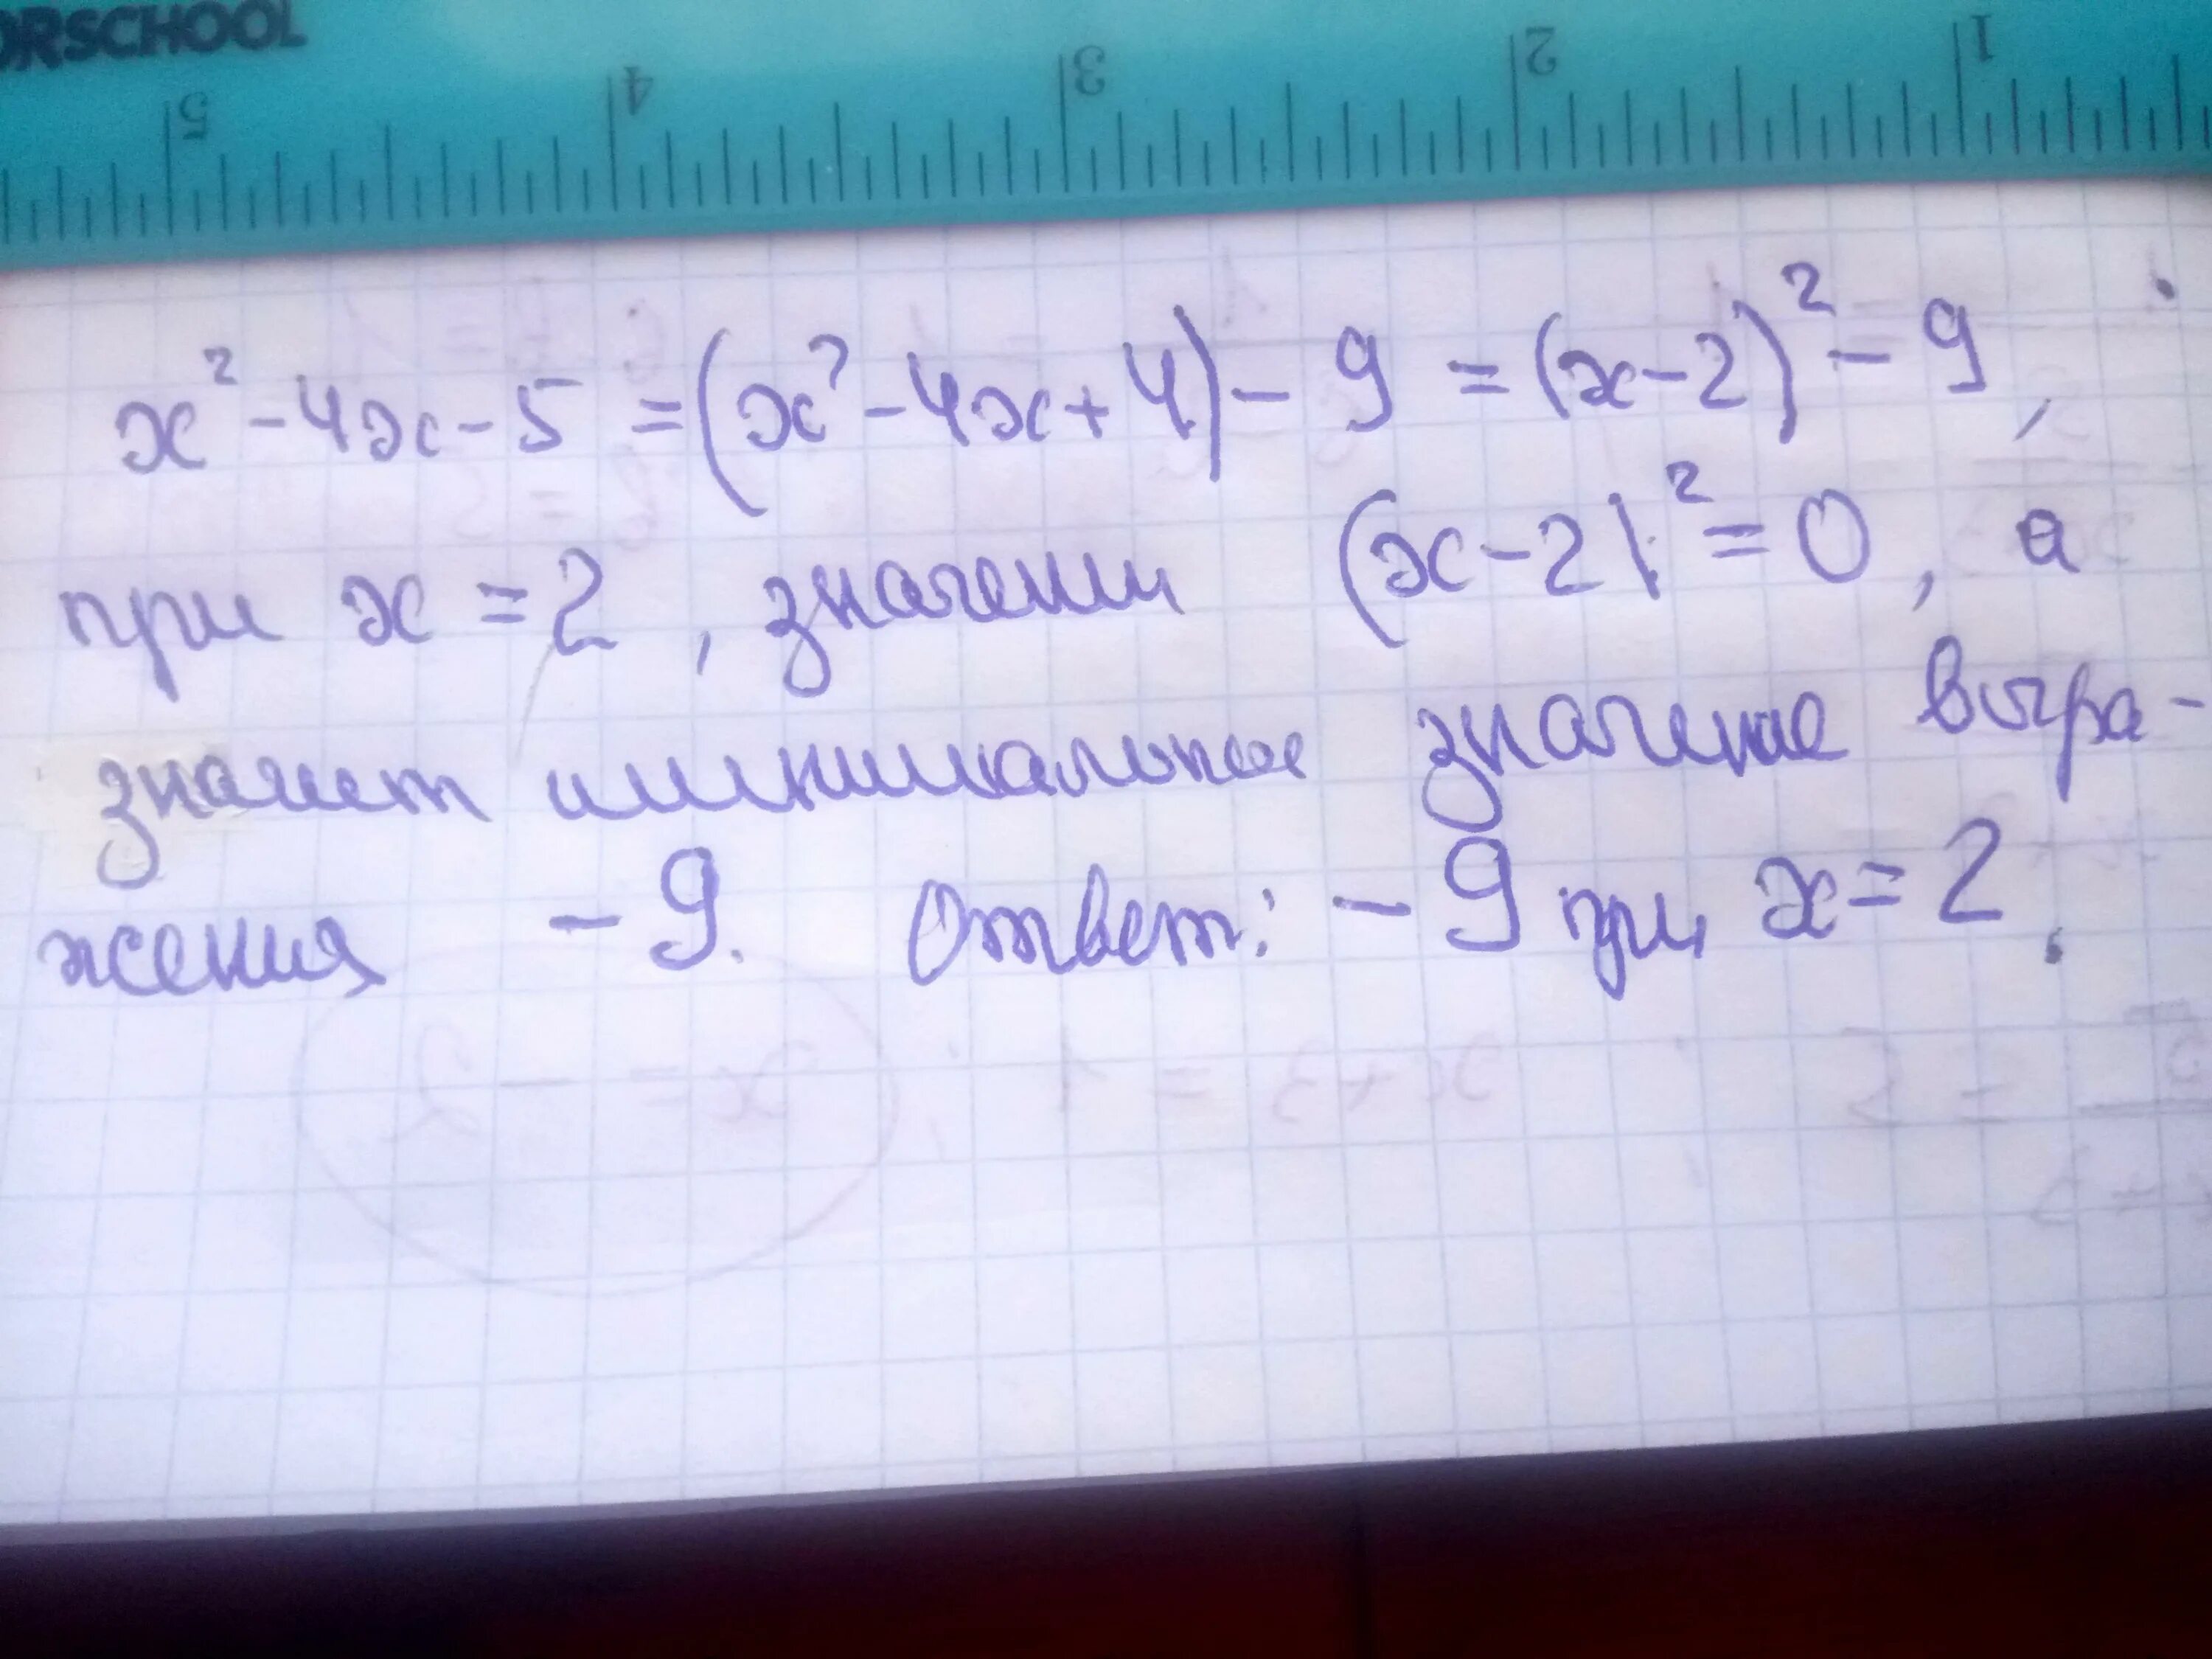 ORSCHOOL
5 4 3 2 1
x² - 4x - 5 = (x² - 4x + 4) - 9 = (x - 2)² - 9,
при x = 2, значении (x - 2)² = 0, а
значит минимальное значение выра-
жения - 9. Ответ: - 9 при x = 2.
x = - 2 x + 3 = 1